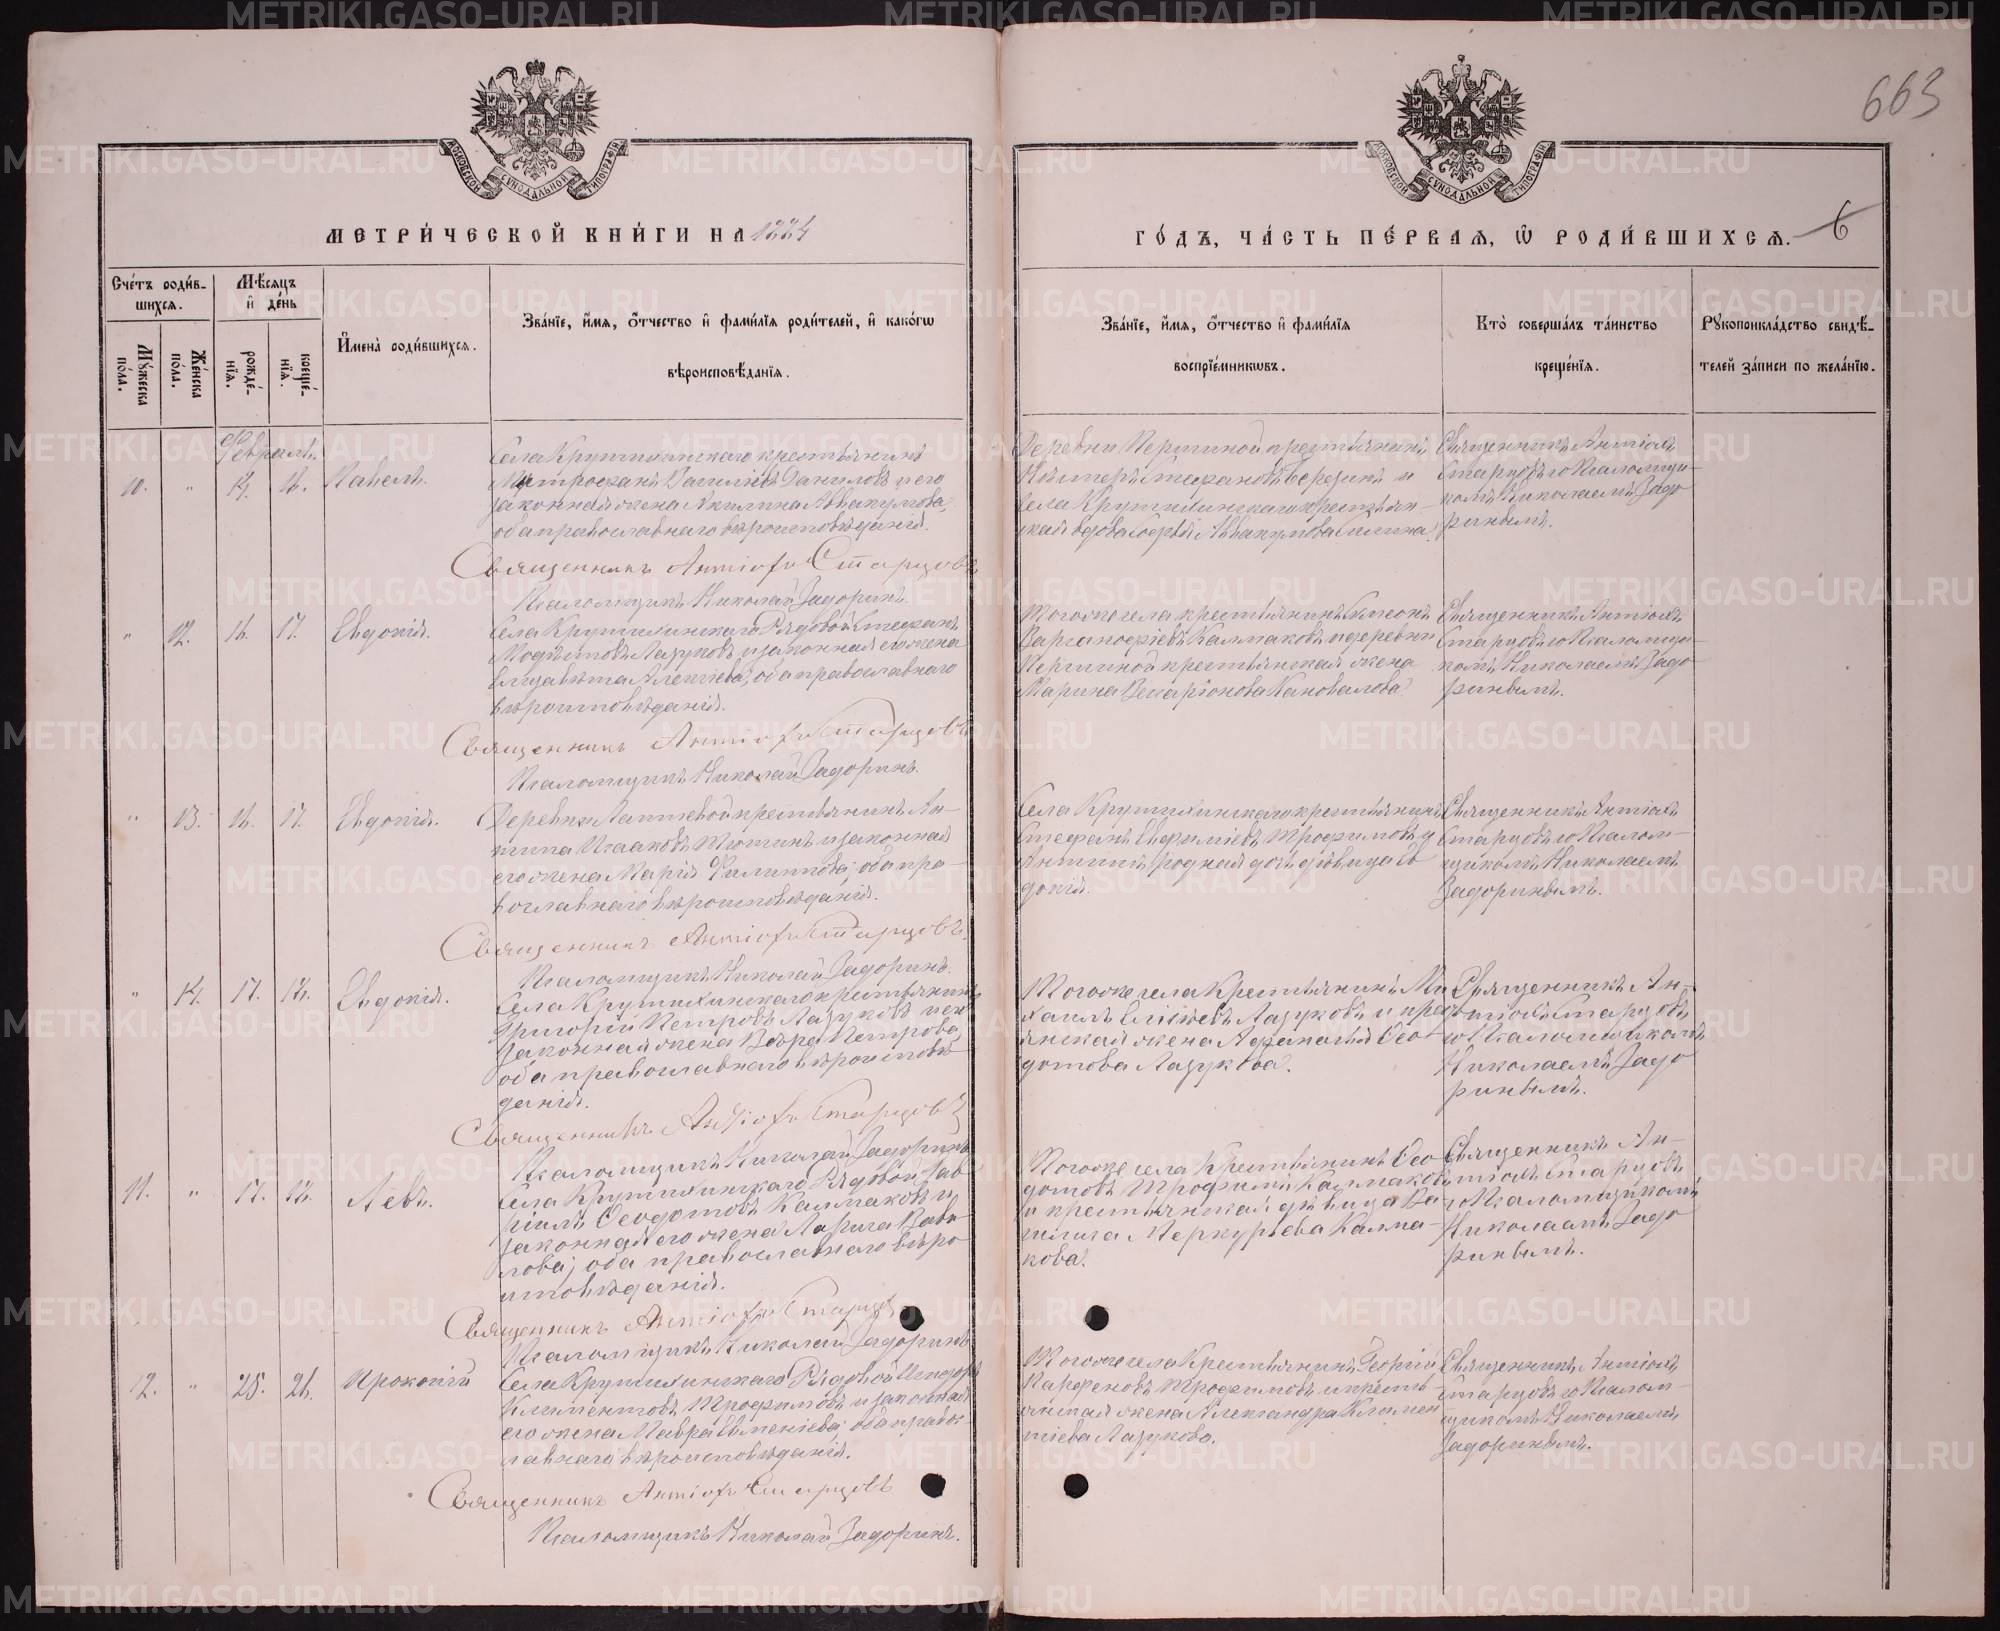 663
МОСКОВСКОЙ СѴНОДАЛЬНОЙ ТИПОГРАФІИ
МОСКОВСКОЙ СѴНОДАЛЬНОЙ ТИПОГРАФІИ
МЕТРИ́ЧЕСКОЙ КНИ́ГИ НА 1884
ГО́ДЪ, ЧА́СТЬ ПЕ́РВАЯ, Ѡ РОДИ́ВШИХСЯ. 6
Сче́тъ роди́в-
шихся.
Мѣ́сяцъ
и де́нь
Му́жеска
по́ла.
Же́нска
по́ла.
рожде́-
нїя.
креще́-
нїя.
Имена̀ роди́вшихся.
Зва́нїе, и́мя, о́тчество и фами́лїя роди́телей, и како́гѡ
вѣроисповѣ́данїя.
Зва́нїе, и́мя, о́тчество и фами́лїя
воспрїе́мникѡвъ.
Кто̀ соверша́лъ та́инство
креще́нїя.
Рукоприкла́дство свидѣ́-
телей за́писи по жела́нїю.
Февраль.
10. " 14. 18. Павелъ.
Села Крутихинскаго крестьянинъ
Митрофанъ Василіевъ Даниловъ и его
законная жена Акилина Аввакумова,
оба православнаго вѣроисповѣданія.
Священникъ Антіохъ Старцовъ
Псаломщикъ Николай Задоринъ.
Деревни Першиной крестьянинъ
села Крутихинскаго крестьян-
ская вдова Софья Аввакумова
Священникъ Антіохъ
Старцовъ съ Псаломщи-
комъ Николаемъ Задо
ринымъ.
" 12. 16. 17. Евдокія.
Села Крутихинскаго Рядовой Стефанъ
Модестовъ Лазуковъ и законная его жена
Елизавета Алексіева, оба православнаго
вѣроисповѣданія.
Священникъ Антіохъ Старцовъ
Псаломщикъ Николай Задоринъ.
Тогоже села крестьянинъ Симеонъ
Варганофіевъ Калмаковъ и деревни
Першиной крестьянская жена
Марина Иларіонова Коновалова.
Священникъ Антіохъ
Старцовъ съ Псаломщи-
комъ Николаемъ Задо
ринымъ.
" 13. 16. 17. Евдокія.
Деревни Лаптевой крестьянинъ Ан-
типа Исааковъ Тютинъ и законная
его жена Марія Филиппова, оба пра-
вославнаго вѣроисповѣданія.
Священникъ Антіохъ Старцовъ.
Псаломщикъ Николай Задоринъ.
Села Крутихинскаго крестьянинъ
Стефанъ Евфиміевъ Трофимовъ и
Антипы родная дочь дѣвица Ев
докія.
Священникъ Антіохъ
Старцовъ съ Псалом-
щикомъ Николаемъ
Задоринымъ.
" 14. 17. 18. Евдокія.
Села Крутихинскаго крестьянинъ
Григорій Петровъ Лазуковъ и его
законная жена Вѣра Петрова,
оба православнаго вѣроисповѣ
данія.
Священникъ Антіохъ Старцовъ
Псаломщикъ Николай Задоринъ
Тогоже села Крестьянинъ Ми
хаилъ Елисѣевъ Лазуковъ и кресть
янская жена Афанасія Ѳео-
дотова Лазукова.
Священникъ Ан-
тіохъ Старцовъ
съ Псаломщикомъ
Николаемъ Задо
ринымъ.
11. " 17. 18. Левъ.
Села Крутихинскаго Рядовой Гав-
ріилъ Ѳеодотовъ Калмаковъ и
законная его жена Лариса Вави-
лова, оба православнаго вѣро
исповѣданія.
Священникъ Антіохъ Старцовъ
Псаломщикъ Николай Задоринъ
Тогоже села Крестьянинъ Ѳео
дотовъ Трофимъ Калмаковъ
и крестьянская дѣвица Ва-
силиса Меркурьева Калма-
кова.
Священникъ Ан-
тіохъ Старцовъ
съ Псаломщикомъ
Николаемъ Задо
ринымъ.
12. " 25. 26. Прокопій
Села Крутихинскаго Рядовой Исидоръ
Климентовъ Трофимовъ и законная
его жена Мавра Евменіева, оба правос-
лавнаго вѣроисповѣданія.
Священникъ Антіохъ Старцовъ
Псаломщикъ Николай Задоринъ.
Тогоже села Крестьянинъ Георгій
Парфеновъ Трофимовъ и кресть-
янская жена Александра Климен
тіева Лазукова.
Священникъ Антіохъ
Старцовъ съ Псалом-
щикомъ Николаемъ
Задоринымъ.
METRIKI.GASO-URAL.RU